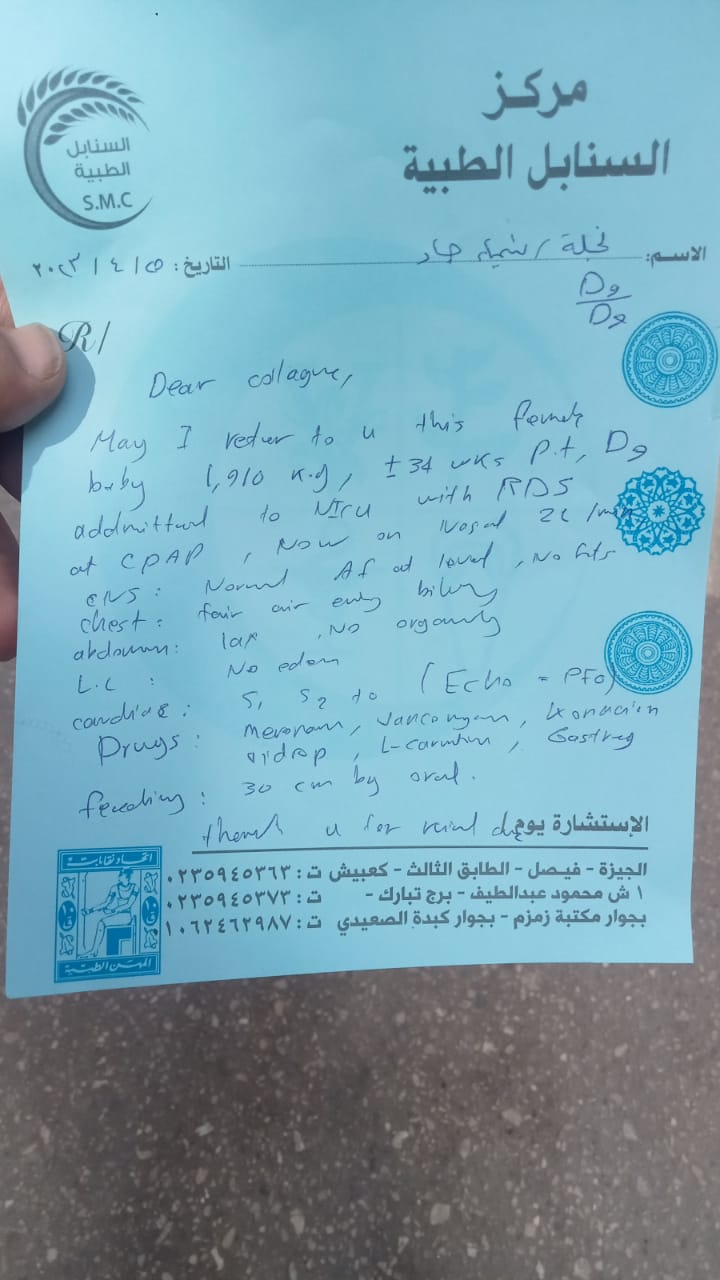 السنابل
الطبية
S.M.C
مركز
السنابل الطبية
الاسم: نجلة / شيماء
التاريخ: ٥ / ٤ / ٢٠٢٣
D9
D9
R/
Dear collague,
May I refer to u this female
baby 1,910 K.g, ± 34 wks P.t, D9
addmitted to NICU with RDS
at CPAP, Now on Nasal 2L/min
CNS: Normal AF at level, No fits
chest: fair air entry
abdomen: lax, No
L.L: No edem
cardiac: S1 S2 to (Echo = PFO)
Drugs: Meronam, Vancomycin,
L-carnitin,
feeding: 30 cm by oral.
الإستشارة يوم:
thank u for
الجيزة - فيصل - الطابق الثالث - كعبيش ت: ٠٢٣٥٩٤٥٣٦٣
١ ش محمود عبداللطيف - برج تبارك - ت: ٠٢٣٥٩٤٥٣٧٣
بجوار مكتبة زمزم - بجوار كبدة الصعيدي ت: ٠١٠٦٢٤٦٢٩٨٧
اتحاد نقابات
المهن الطبية